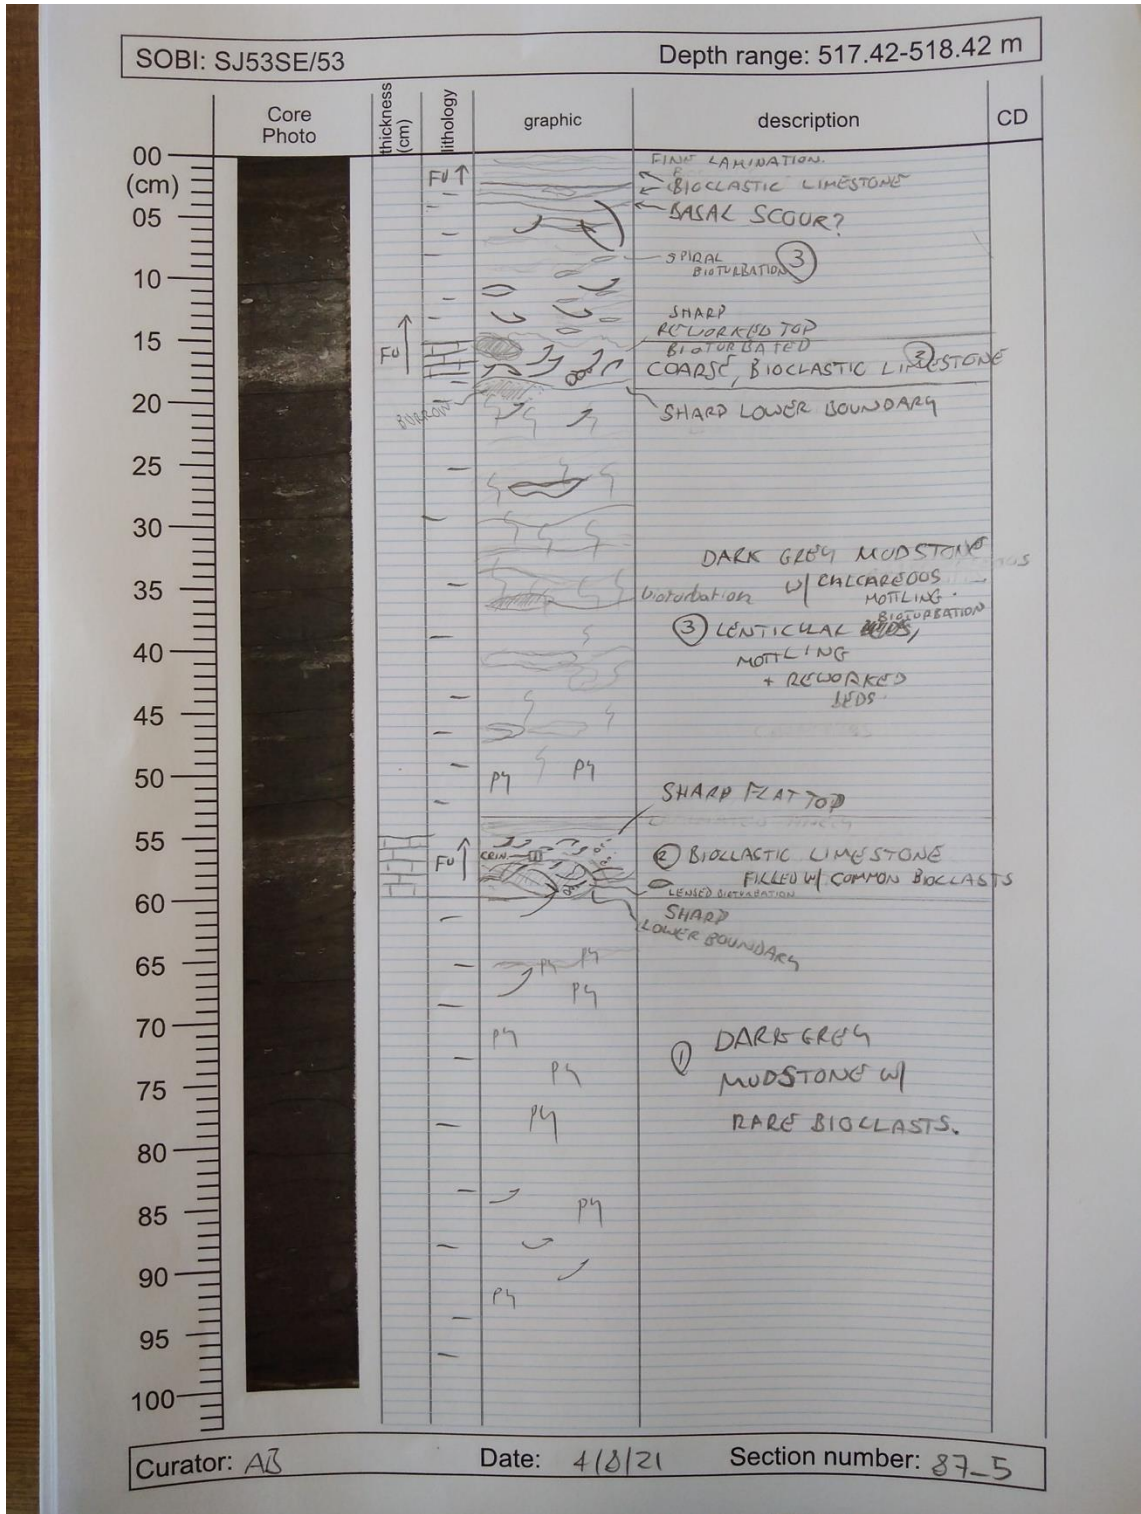 SOBI: SJ53SE/53
Depth range: 517.42-518.42 m
Core
Photo
thickness
(cm)
lithology
graphic
description
CD
00
(cm)
05
10
15
20
25
30
35
40
45
50
55
60
65
70
75
80
85
90
95
100
FU
FU
FU
BURROW
CRIN.
PY PY
PY PY
PY
PY
PY
PY
PY
PY
FINE LAMINATION.
BIOCLASTIC LIMESTONE
BASAL SCOUR?
SPIRAL
BIOTURBATION 3
SHARP
REWORKED TOP
BIOTURBATED
COARSE, BIOCLASTIC LIMESTONE
SHARP LOWER BOUNDARY
DARK GREY MUDSTONE
bioturbation W/ CALCAREOUS
MOTTLING.
BIOTURBATION
3 LENTICULAL
MOTTLING
+ REWORKED
BEDS.
SHARP FLAT TOP
2 BIOCLASTIC LIMESTONE
FILLED W/ COMMON BIOCLASTS
LENSED BIOTURBATION
SHARP
LOWER BOUNDARY
1 DARK GREY
MUDSTONE W/
RARE BIOCLASTS.
Curator: AB
Date: 4/8/21
Section number: 87_5